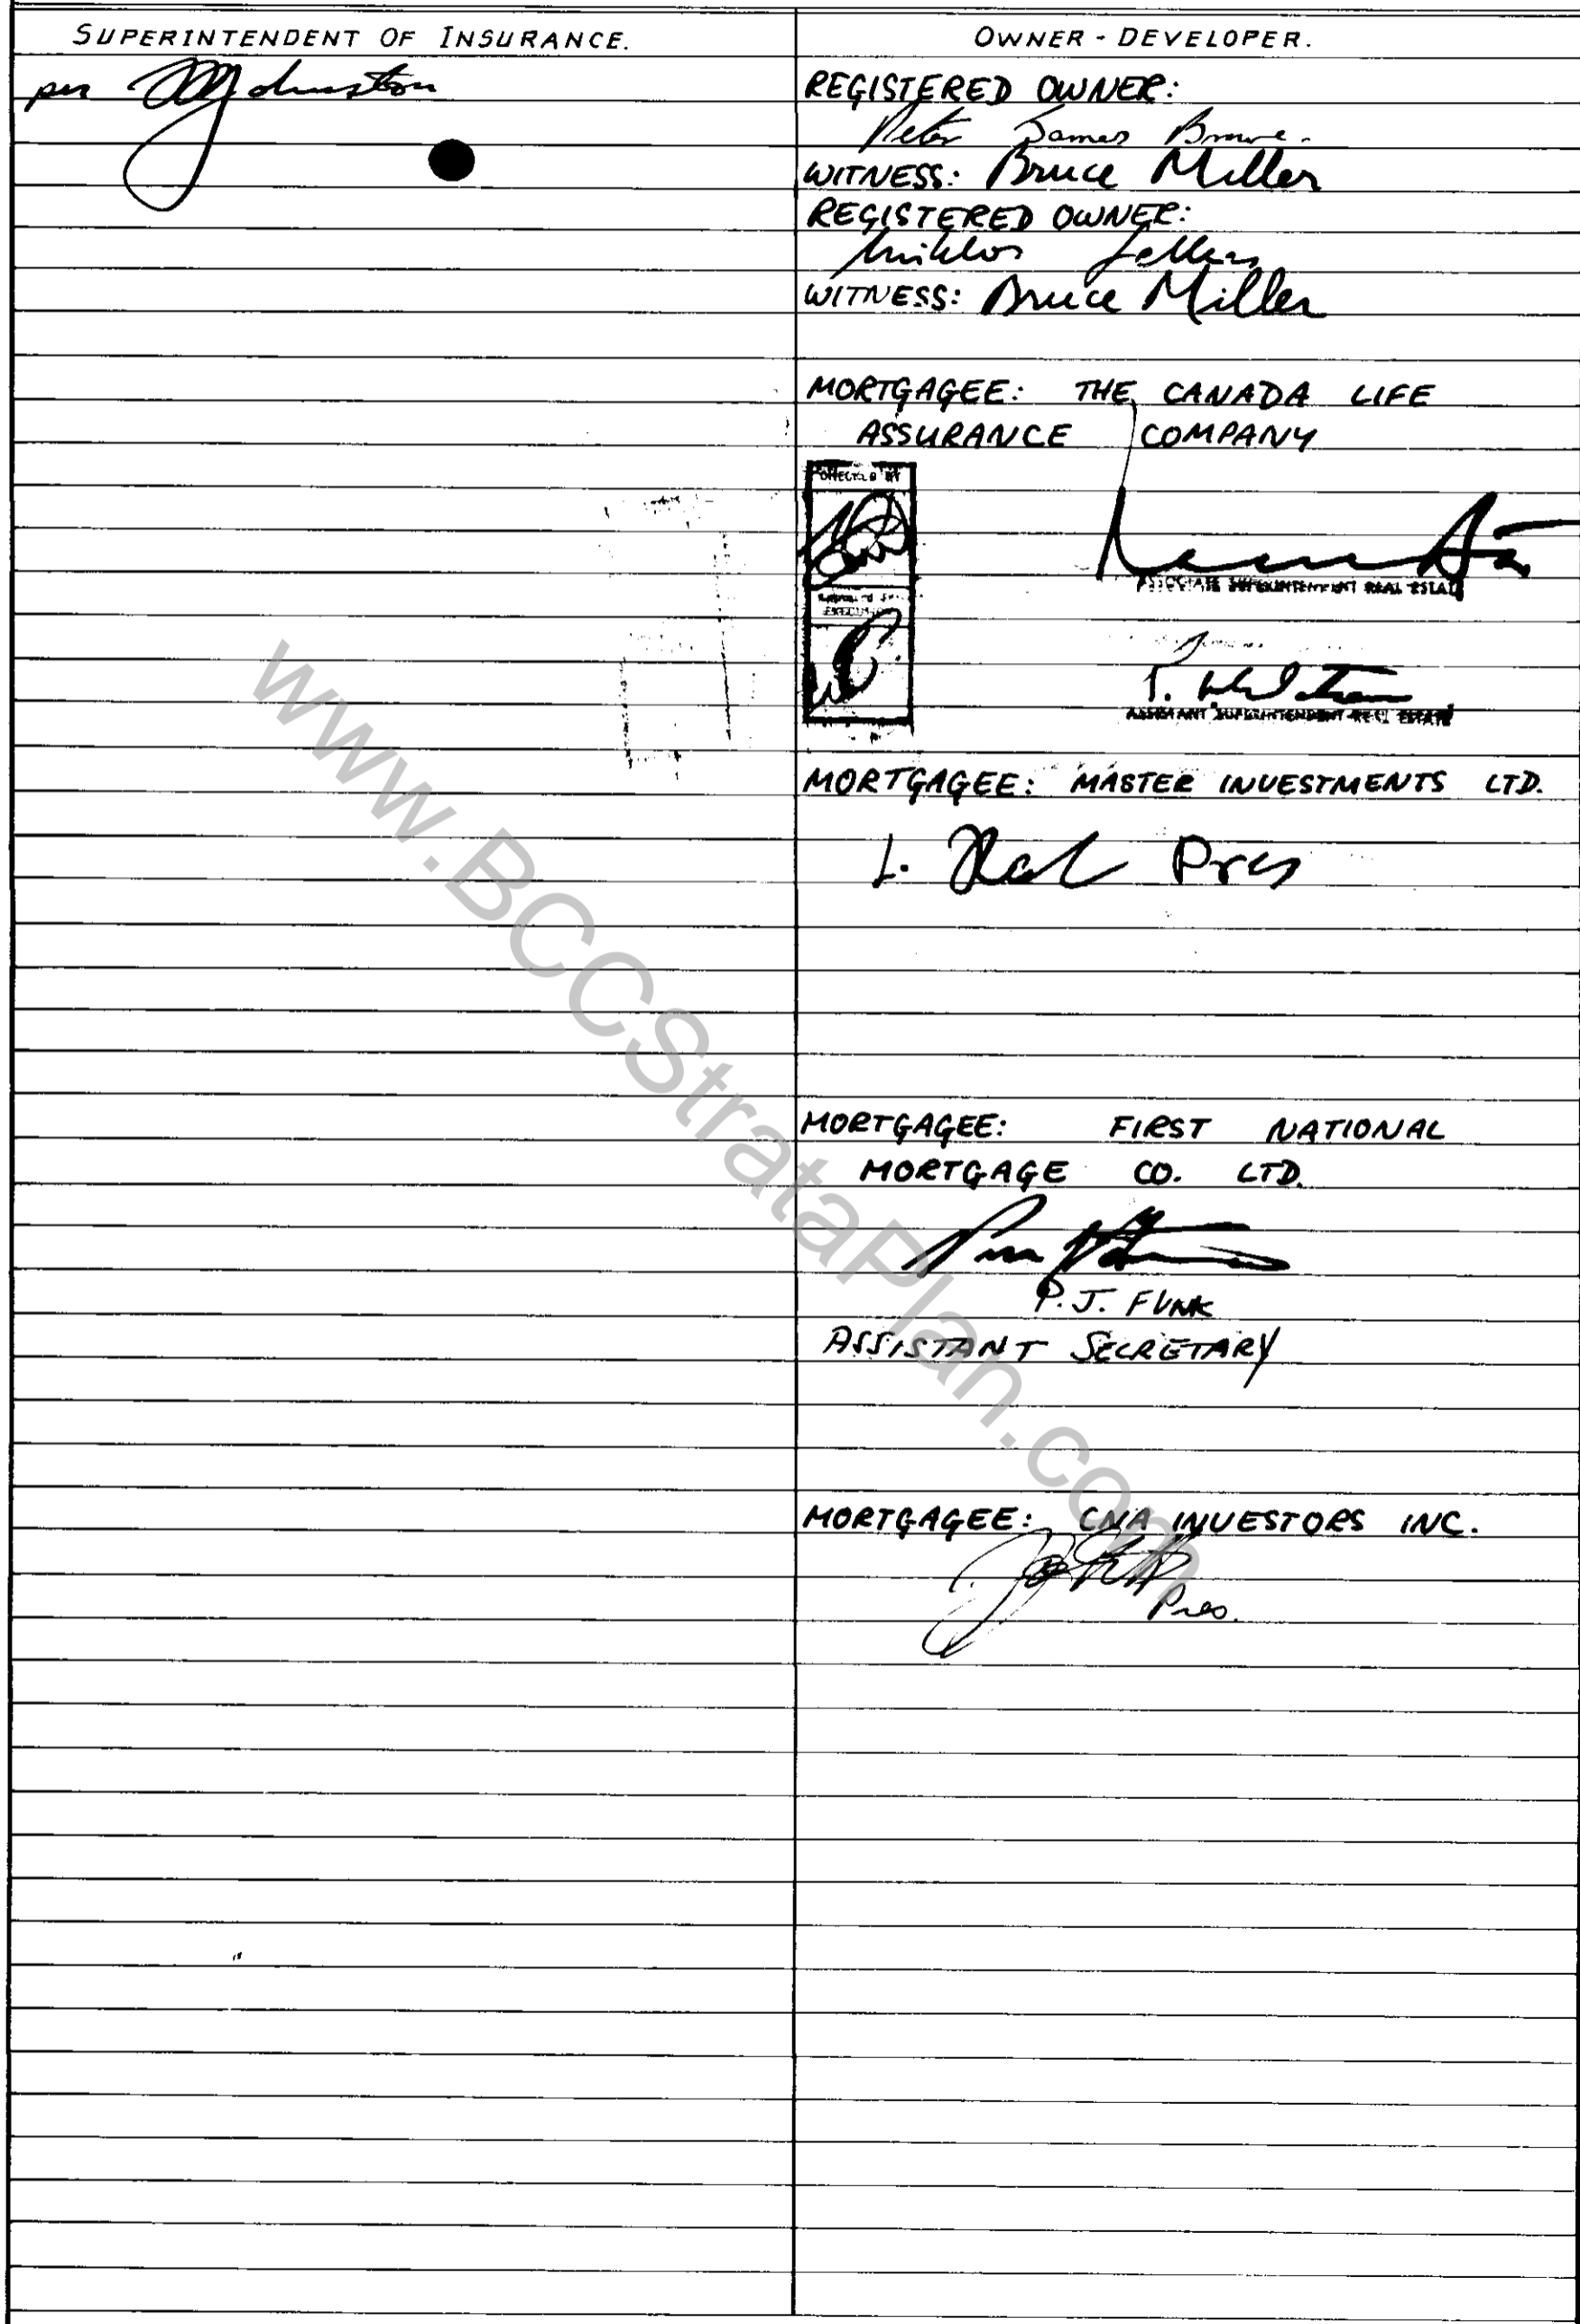 SUPERINTENDENT OF INSURANCE.
per Johnston
OWNER - DEVELOPER.
REGISTERED OWNER:
Peter James
WITNESS: Bruce Miller
REGISTERED OWNER:
Miklos
WITNESS: Bruce Miller
MORTGAGEE: THE CANADA LIFE
ASSURANCE COMPANY
ASSOCIATE SUPERINTENDENT REAL ESTATE
T.
ASSISTANT SUPERINTENDENT REAL ESTATE
MORTGAGEE: MASTER INVESTMENTS LTD.
L. Pres
MORTGAGEE: FIRST NATIONAL
MORTGAGE CO. LTD.
P.J. FUNK
ASSISTANT SECRETARY
MORTGAGEE: CNA INVESTORS INC.
Pres.
www.BCCStrataPlan.com